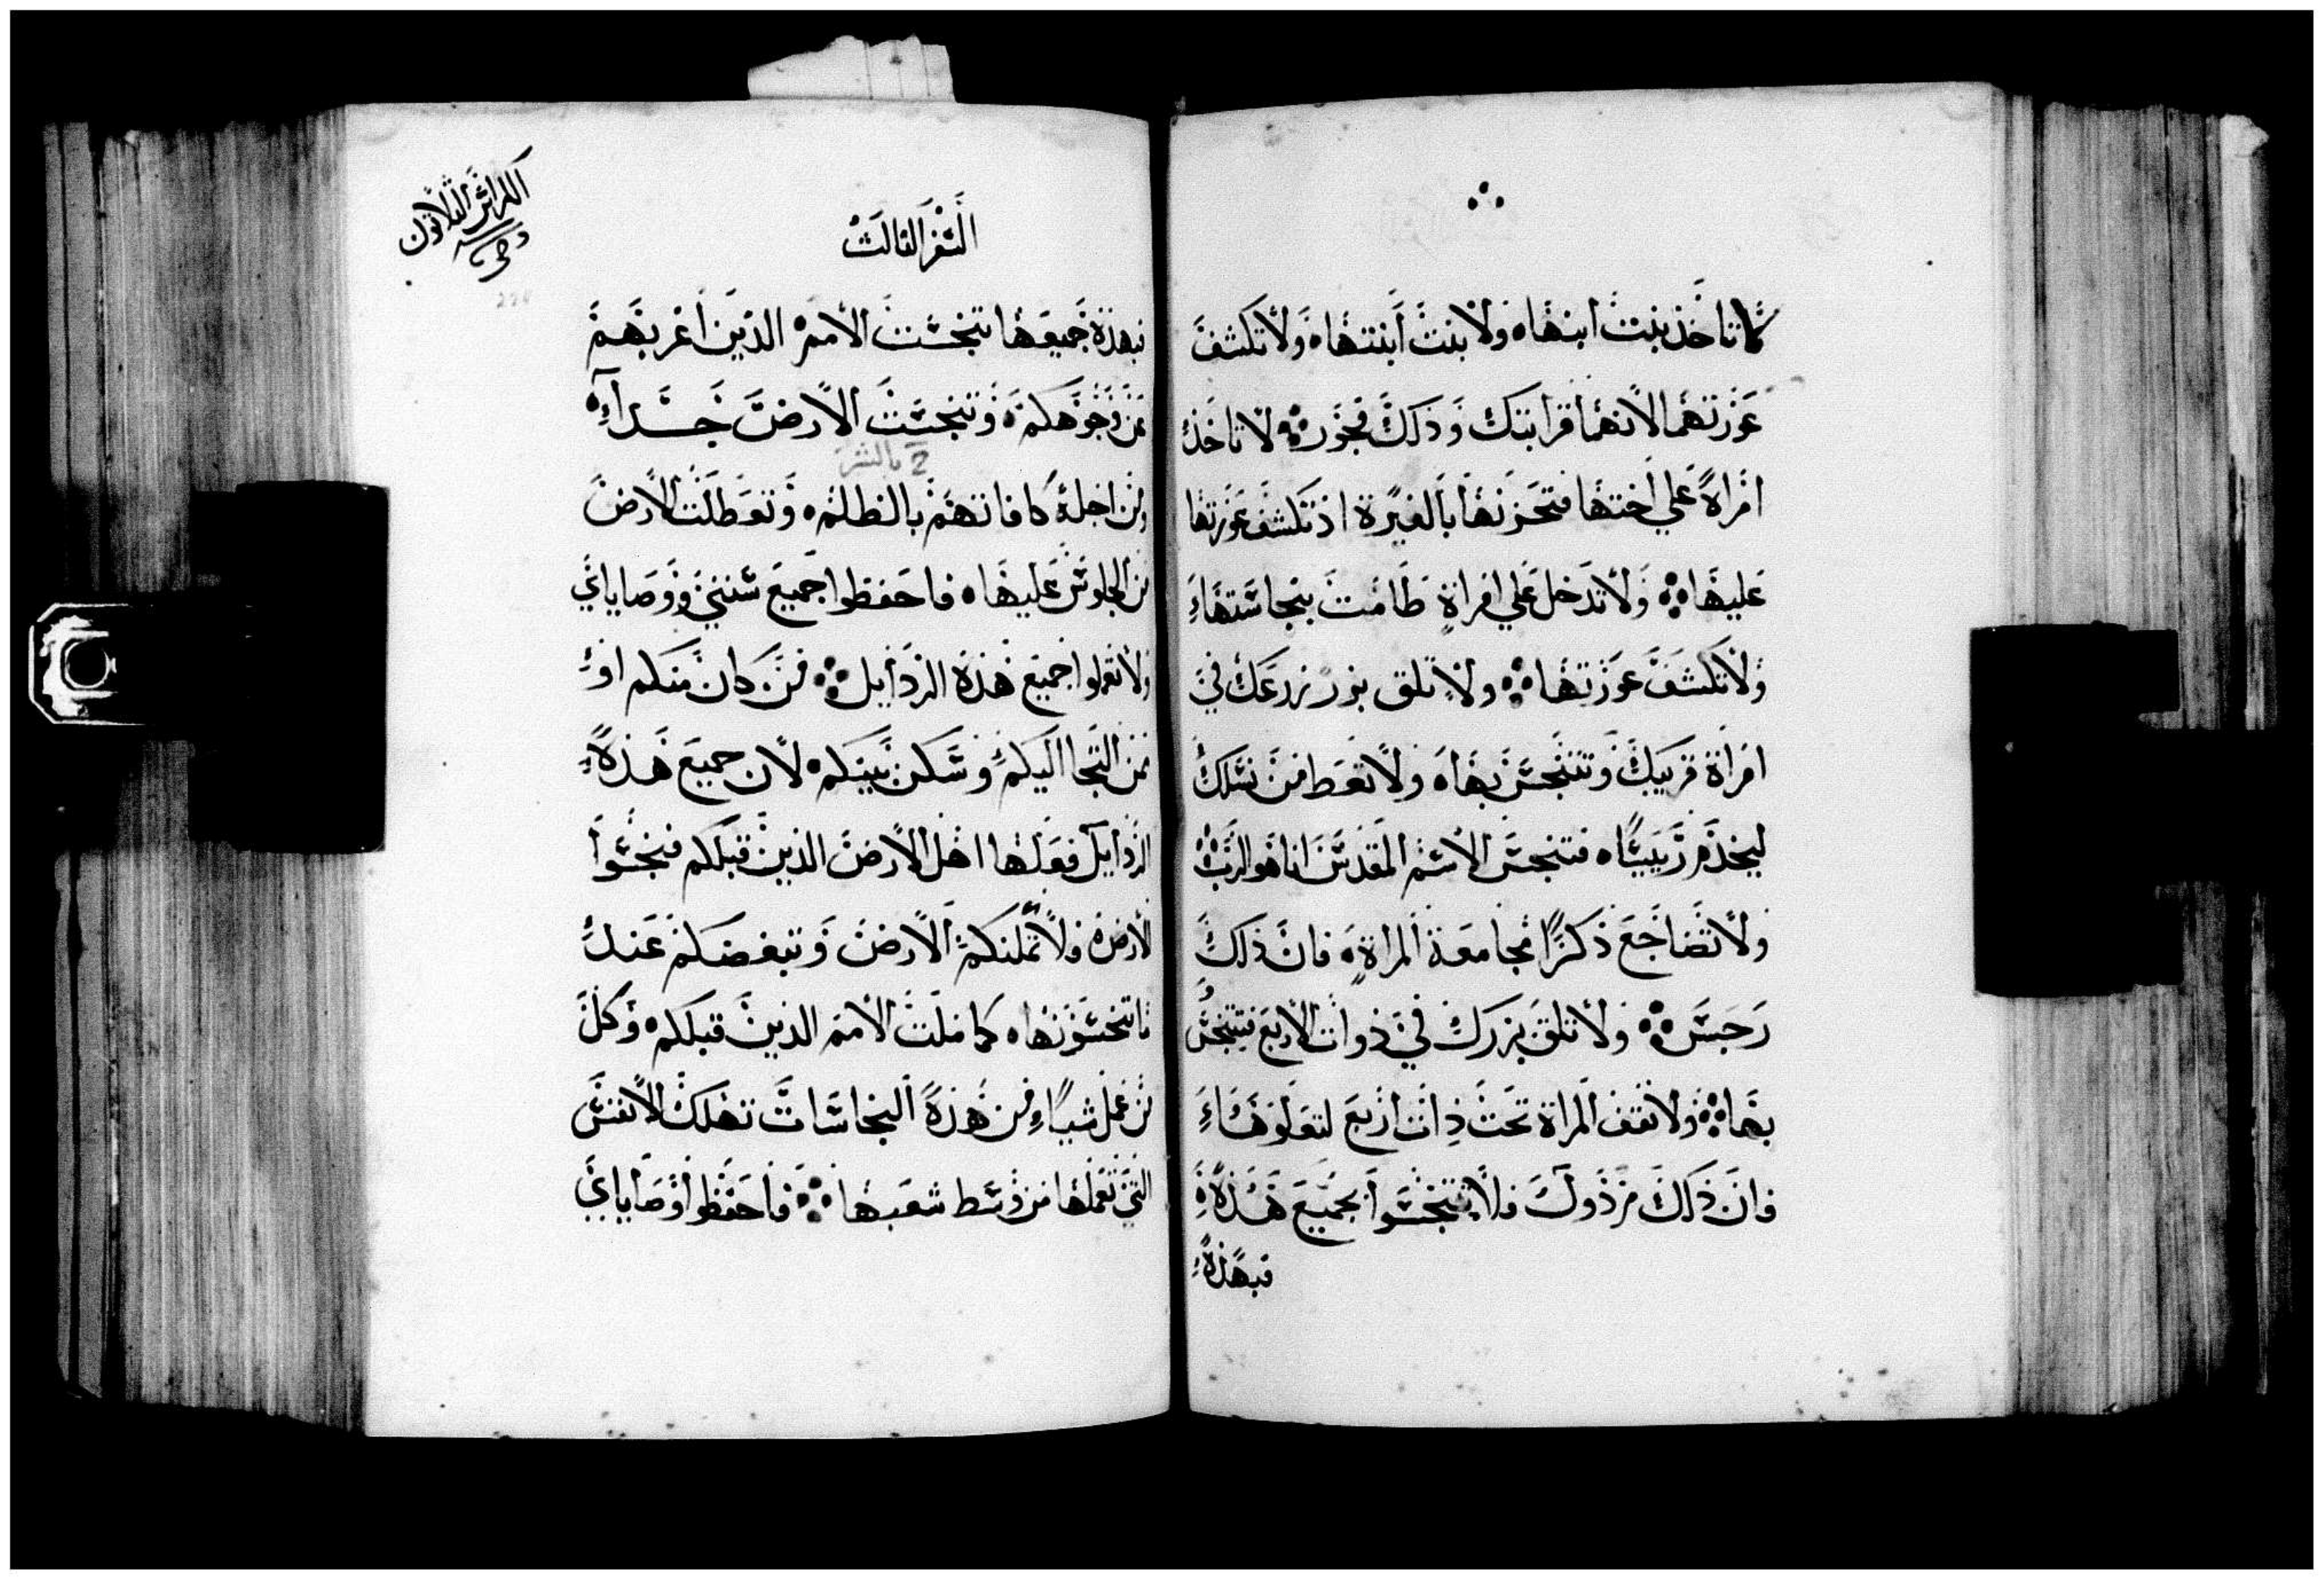 لا تاخذ بنت ابنها ولا بنت ابنتها ولا تكشف
عورتهما لانهما قرابتك وذلك فجور لا تاخذ
امراة علي اختها فتحزنها بالغيرة اذ تكشف عورتها
عليها ولا تدخل علي امراة طامث بنجاستها
ولا تكشف عورتها ولا تلق بزر زرعك في
امراة قريبك وتتنجس بها ولا تعط من نسلك
ليخدم رييسا فتنجس الاسم المقدس انا هو الرب
ولا تضاجع ذكرا مجامعة المراة فان ذلك
رجس ولا تلق بزرك في ذوات الاربع فتتنجس
بها ولا تقف المراة تحت ذات اربع لتعلوها
فان ذلك مرذول فلا تتنجسوا بجميع هذه
فبهذه
السفر الثالث
الكراس الثلاثون
فبهذه جميعها تنجست الامم الذين اغربهم
من وجوهكم وتنجست الارض جدا
ومن اجله كافاتهم بالظلم وتعطلت الارض
بالشر
من الجلوس عليها فاحفظوا جميع سنني ووصاياي
ولا تعملوا جميع هذه الرذايل من كان منكم او
ممن التجا اليكم وسكن بينكم لان جميع هذه
الرذايل فعلها اهل الارض الذين قبلكم فنجسوا
الارض ولا تملنكم الارض وتبغضكم عند
ما تنجسونها كما ملت الامم الذين قبلكم وكل
من عمل شيا من هذه النجاسات تهلك الانفس
التي تعملها من وسط شعبها فاحفظوا وصاياي